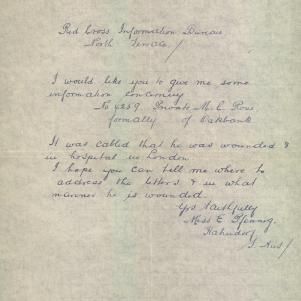 Red Cross Information Bureau
North Terrace/
I would like you to give me some
information concerning
No 4259. Private M. L. Rous
formally of Oakbank
It was cabled that he was wounded &
in hospital in London.
I hope you can tell me where to
address the letters & in what
manner he is wounded.
Yrs Faithfully
Miss E
Hahndorf
S. Aus/